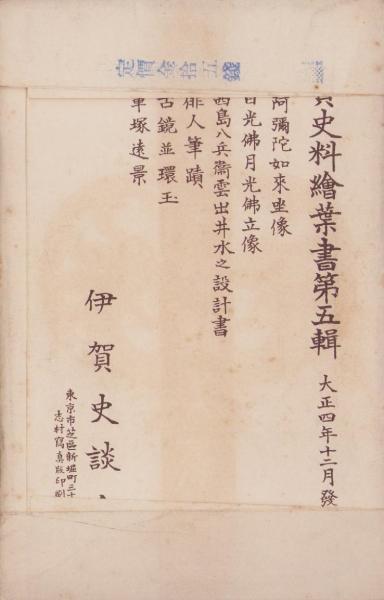 定價金拾五錢
賀史料繪葉書第五輯 大正四年十二月發
阿彌陀如來坐像
日光佛月光佛立像
西島八兵衞雲出井水之設計書
俳人筆蹟
古鏡並環玉
車塚遠景
伊賀史談
東京市芝區新堀町三十
志村寫眞版印刷